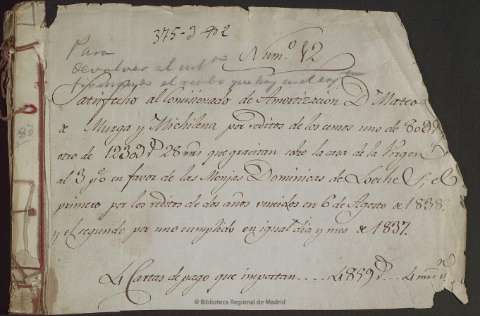 375-3 
Para
devolver al
Num.º 12
Satisfecho al Comisionado de Amortizacion D. Mateo
de Murga y Michilena por reditos de los censos uno de
otro de 28 mrs que gravitan sobre la casa de la Virgen
al 3 p% en favor de las Monjas Dominicas de Loeches, el
primero por los reditos de dos años vencidos en 6 de Agosto de 1838.
y el segundo por uno cumplido en igual dia y mes de 1837.
4 Cartas de pago que importan ..... 4859 4 mrs
© Biblioteca Regional de Madrid